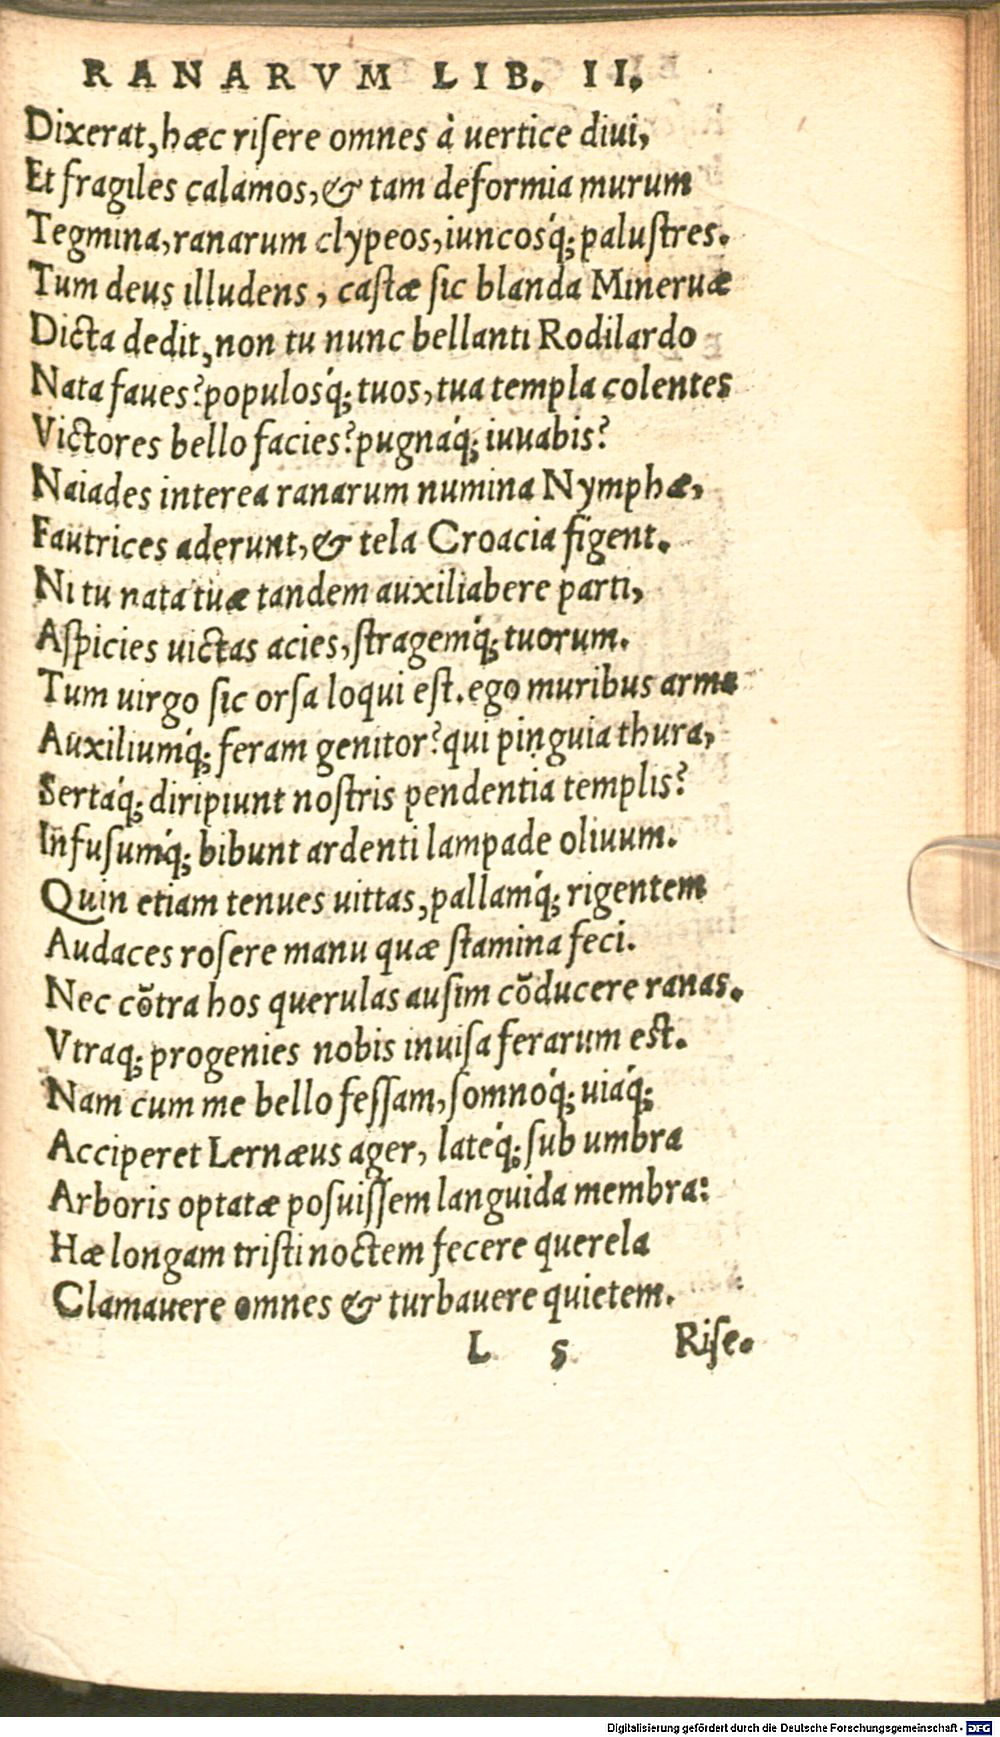 RANARVM LIB. II.
Dixerat, hæc risere omnes à uertice diui,
Et fragiles calamos, & tam deformia murum
Tegmina, ranarum clypeos, iuncosq́; palustres.
Tum deus illudens, castæ sic blanda Mineruæ
Dicta dedit, non tu nunc bellanti Rodilardo
Nata faues? populosq́; tuos, tua templa colentes
Victores bello facies? pugnáq; iuuabis?
Naiades interea ranarum numina Nymphæ,
Fautrices aderunt, & tela Croacia figent.
Ni tu nata tuæ tandem auxiliabere parti,
Aspicies uictas acies, stragemq́; tuorum.
Tum uirgo sic orsa loqui est. ego muribus arma
Auxiliumq́; feram genitor? qui pinguia thura,
Sertáq; diripiunt nostris pendentia templis?
Infusumq́; bibunt ardenti lampade oliuum.
Quin etiam tenues uittas, pallamq́; rigentem
Audaces rosere manu quæ stamina feci.
Nec cõtra hos querulas ausim cõducere ranas.
Vtraq; progenies nobis inuisa ferarum est.
Nam cum me bello fessam, somnoq́; uiáq;
Acciperet Lernæus ager, lateq́; sub umbra
Arboris optatæ posuissem languida membra:
Hæ longam tristi noctem fecere querela
Clamauere omnes & turbauere quietem.
L 5 Rise.
Digitalisierung gefördert durch die Deutsche Forschungsgemeinschaft - DFG